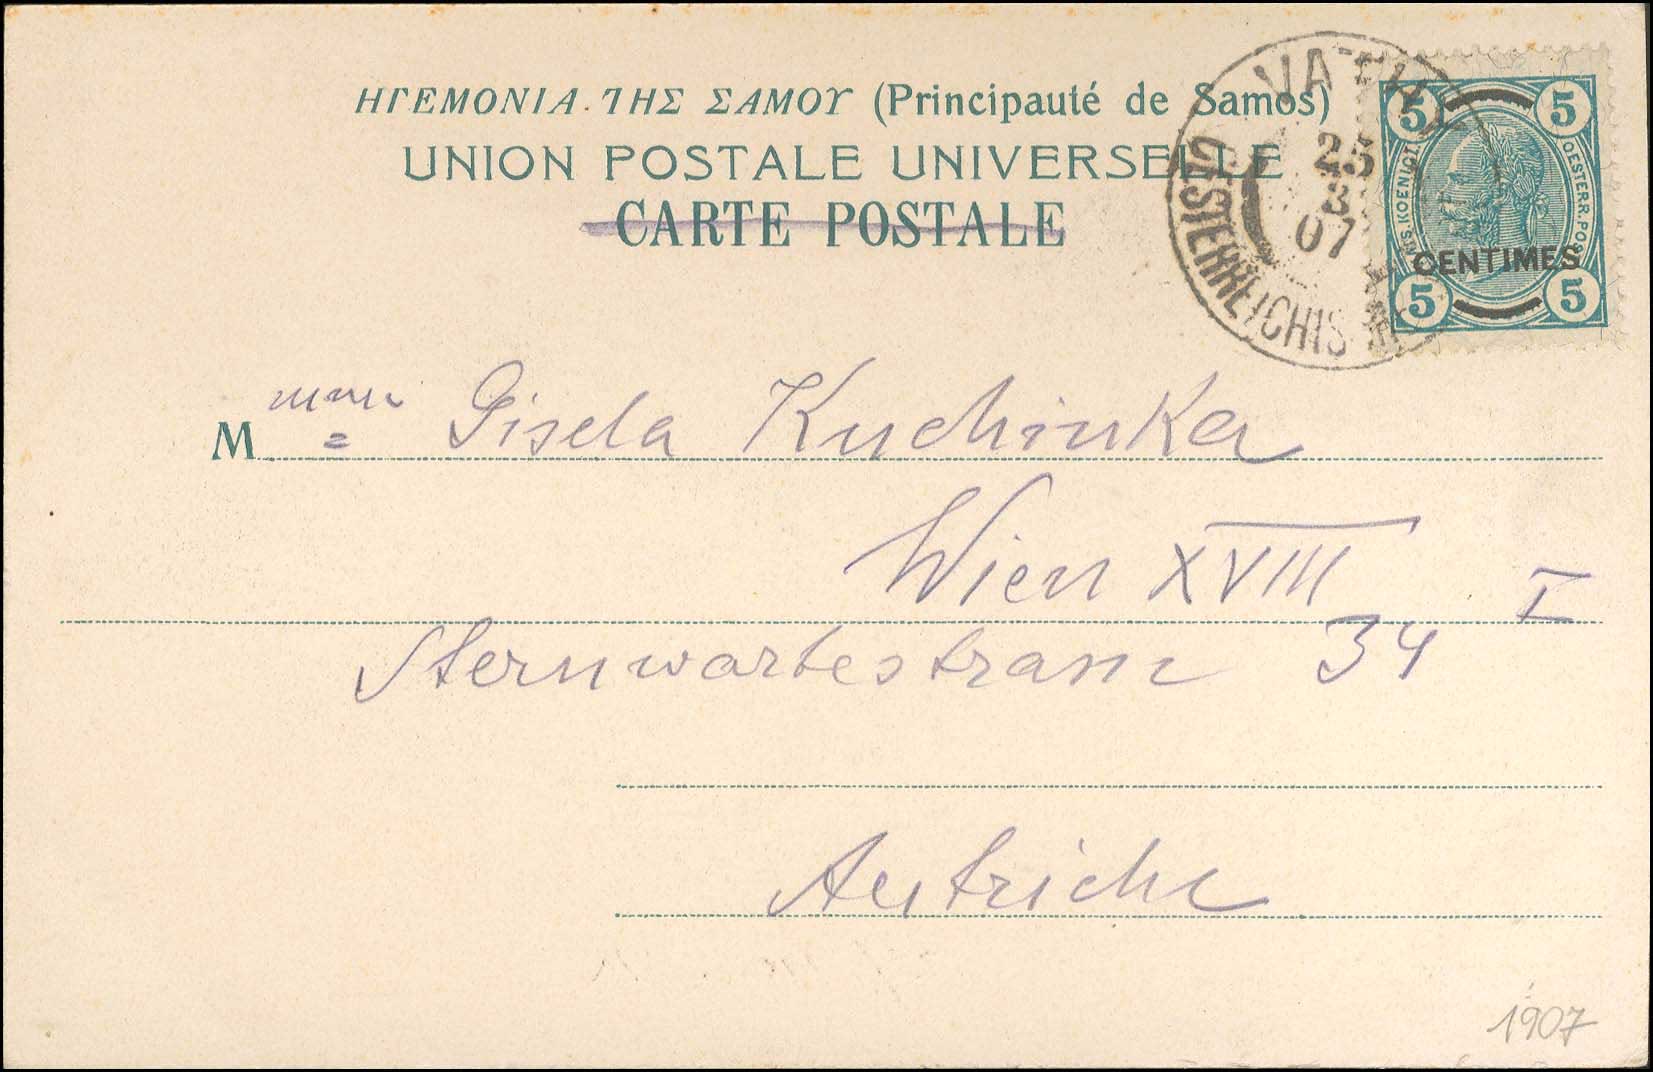 ΗΓΕΜΟΝΙΑ ΤΗΣ ΣΑΜΟΥ (Principauté de Samos)
UNION POSTALE UNIVERSELLE
CARTE POSTALE
VATHY
07
5 5
OESTERR. POST
CENTIMES
5 5
M Gisela Kuchinka
Wien XVIII
I
Sternwartestrasse 34
Autriche
1907